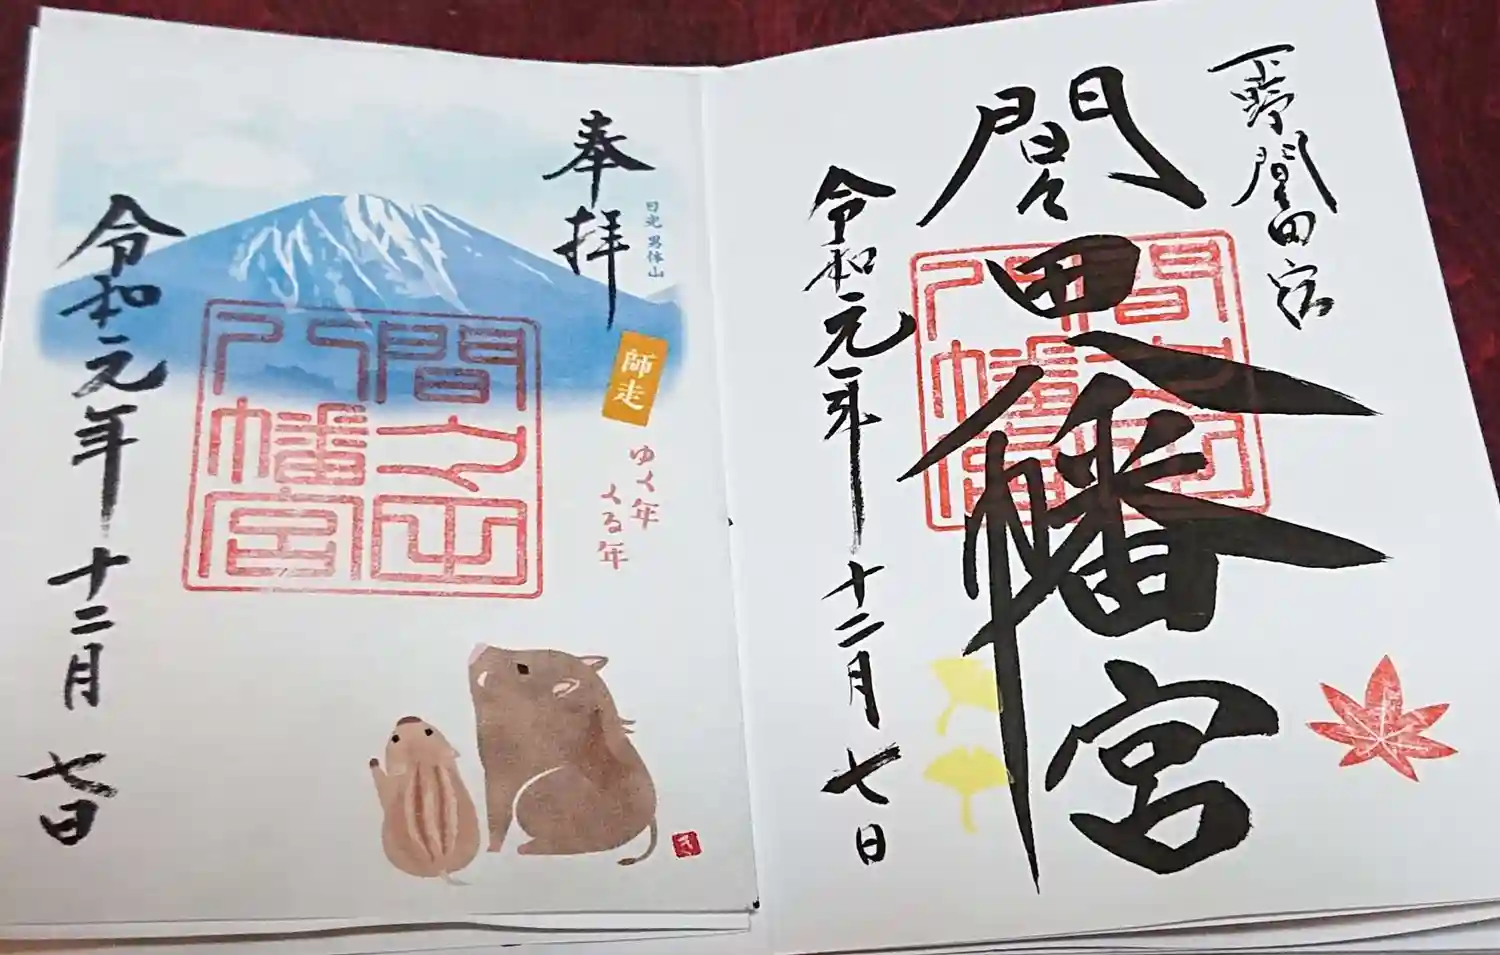 下野間々田宿
間々田八幡宮
令和元年十二月七日
奉拝
日光 男体山
師走
ゆく年
くる年
間之田
八幡宮
令和元年十二月七日